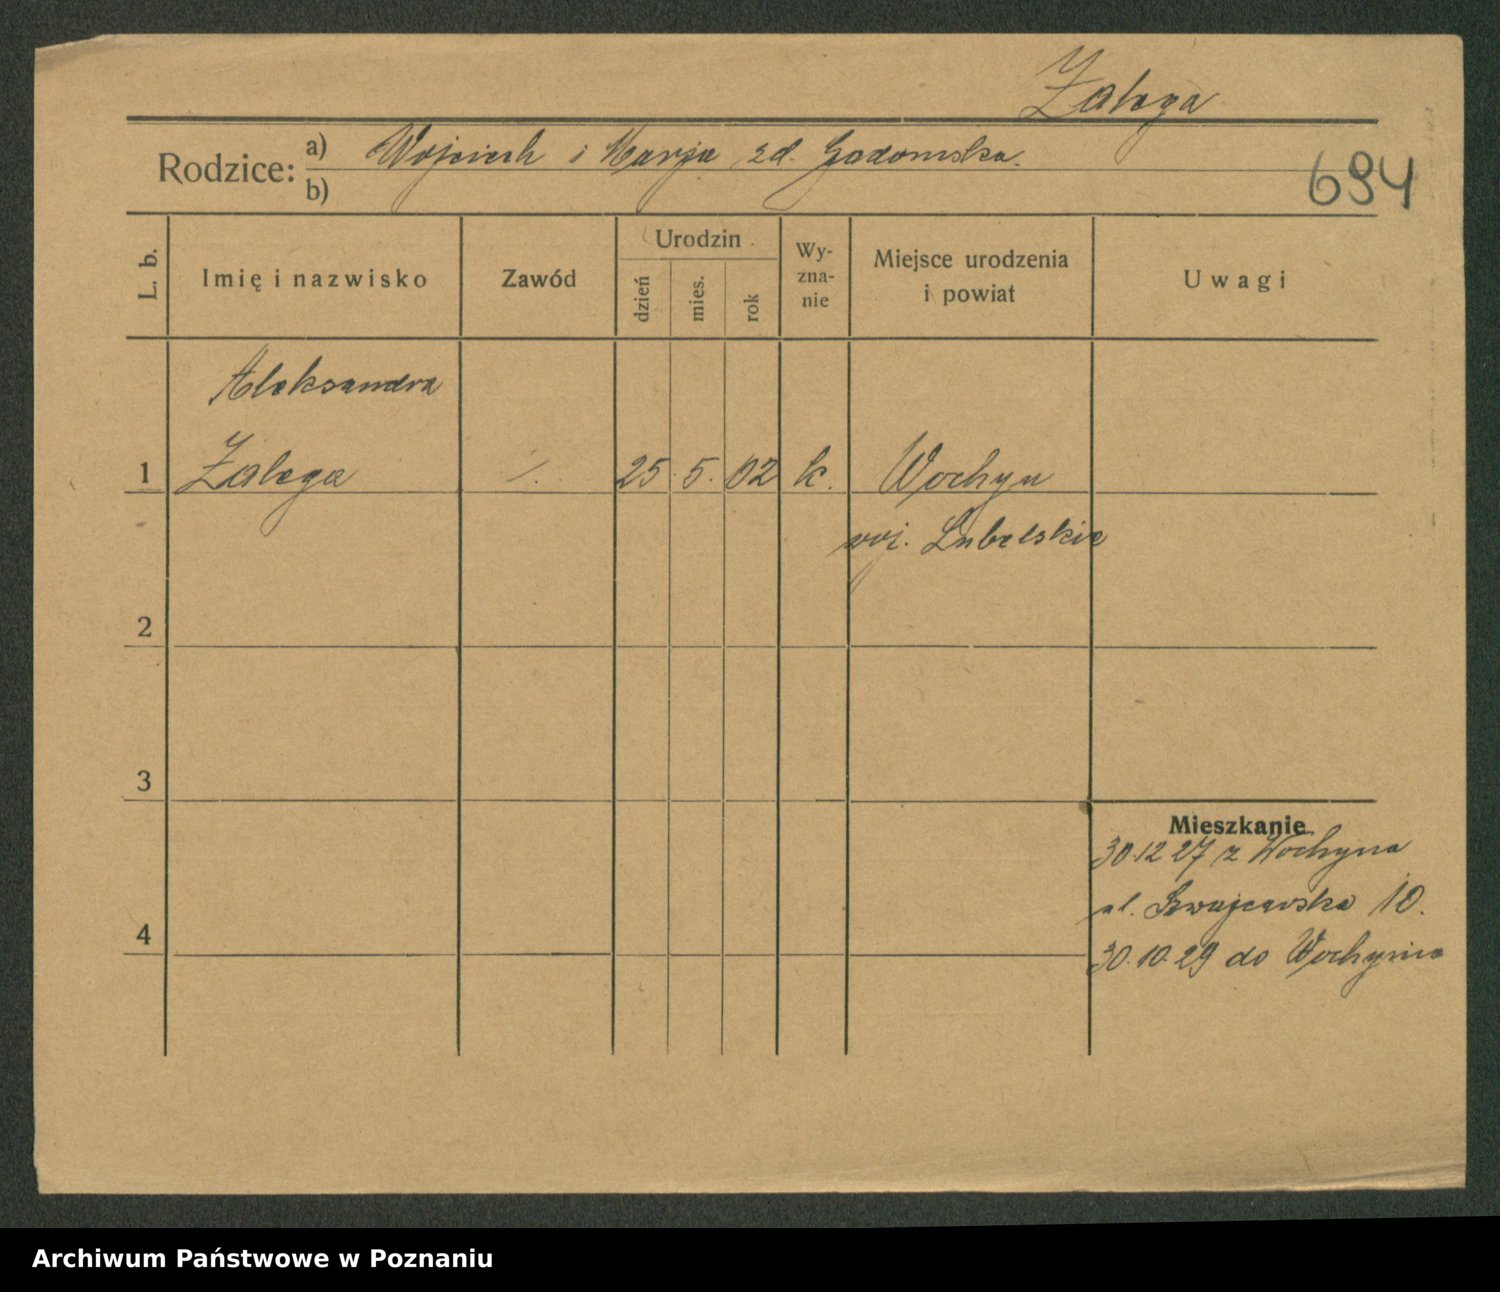 Zalega
Rodzice: a) Wojciech i Marja zd. Gadomska.
b)
694
L. b.
Imię i nazwisko
Zawód
Urodzin
dzień
mies.
rok
Wy-
zna-
nie
Miejsce urodzenia
i powiat
Uwagi
Aleksandra
1 Zalega ·/. 25 5. 02 k. Wochyn
woj. Lubelskie
2
3
Mieszkanie
30.12 27 z Wochyna
ul. Szwajcarska 10.
4
30.10.29 do Wochynia
Archiwum Państwowe w Poznaniu